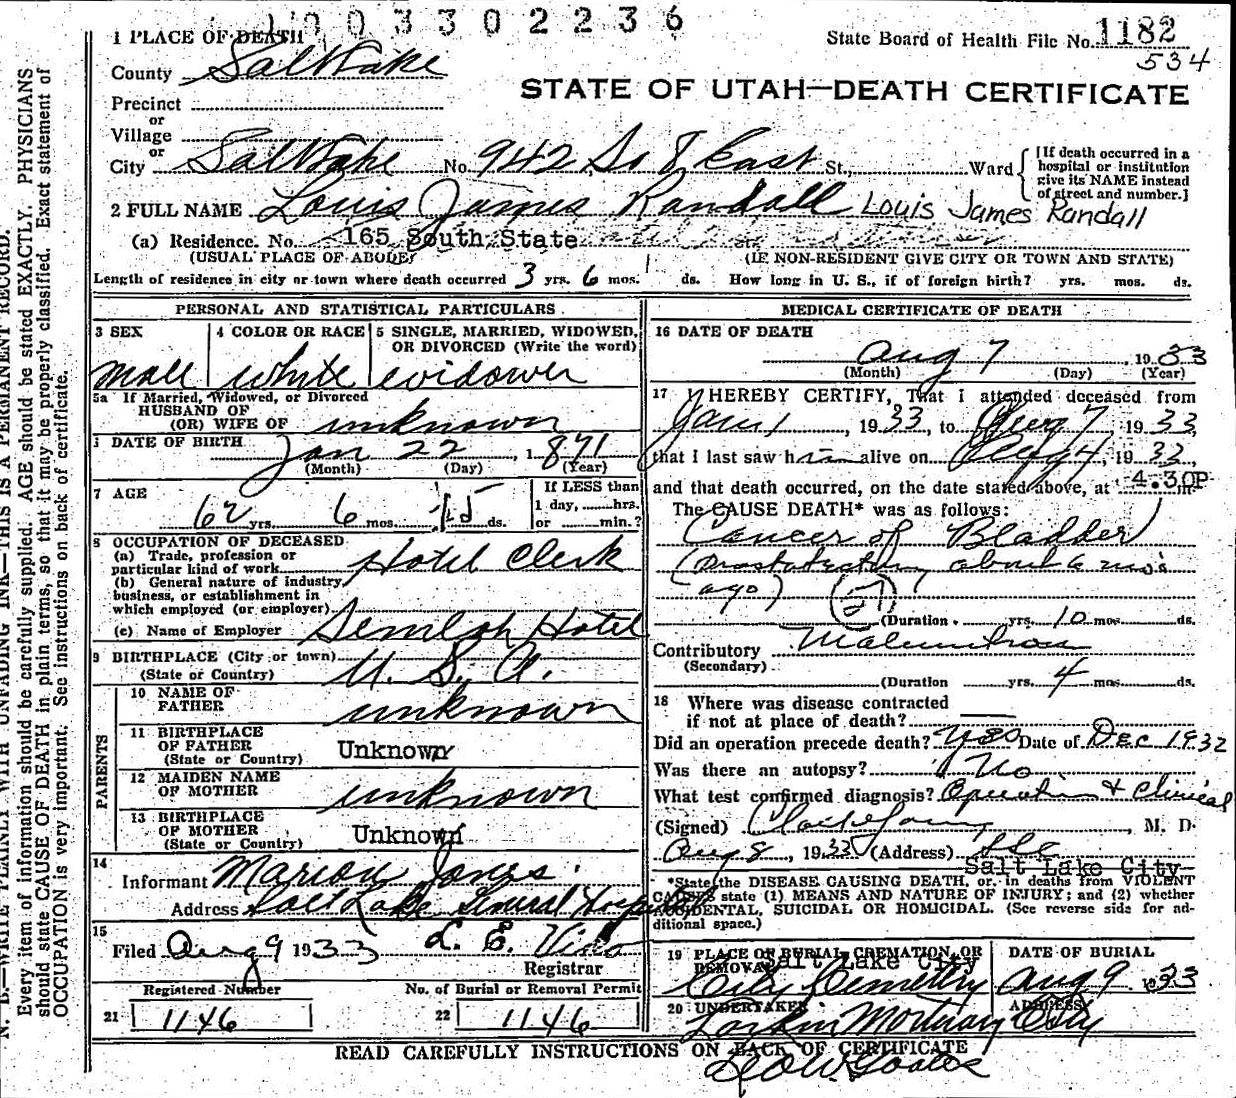 1003302236
1 PLACE OF DEATH
State Board of Health File No. 1182
534
County Salt Lake
STATE OF UTAH—DEATH CERTIFICATE
Precinct
or
Village
or
City Salt Lake No. 942 So 8 East St., Ward
[If death occurred in a hospital or institution give its NAME instead of street and number.]
2 FULL NAME Louis James Randall Louis James Randall
(a) Residence. No. 165 South State
(USUAL PLACE OF ABODE) (IF NON-RESIDENT GIVE CITY OR TOWN AND STATE)
Length of residence in city or town where death occurred 3 yrs. 6 mos. ds. How long in U. S., if of foreign birth? yrs. mos. ds.
PERSONAL AND STATISTICAL PARTICULARS
3 SEX 4 COLOR OR RACE 5 SINGLE, MARRIED, WIDOWED, OR DIVORCED (Write the word)
Male white widower
5a If Married, Widowed, or Divorced
HUSBAND OF
(OR) WIFE OF unknown
DATE OF BIRTH Jan 22, 1871
(Month) (Day) (Year)
7 AGE If LESS than
62 yrs. 6 mos. 15 ds. 1 day, hrs.
or min.?
8 OCCUPATION OF DECEASED
(a) Trade, profession or
particular kind of work Hotel Clerk
(b) General nature of industry,
business, or establishment in
which employed (or employer)
(c) Name of Employer Semloh Hotel
9 BIRTHPLACE (City or town)
(State or Country) U. S. A.
PARENTS
10 NAME OF
FATHER unknown
11 BIRTHPLACE
OF FATHER Unknown
(State or Country)
12 MAIDEN NAME
OF MOTHER unknown
13 BIRTHPLACE
OF MOTHER Unknown
(State or Country)
14
Informant Marion Jones
Address Salt Lake General Hospital
15
Filed Aug 9 1933 L. E.
Registrar
Registered Number No. of Burial or Removal Permit
21 1146 22 1146
MEDICAL CERTIFICATE OF DEATH
16 DATE OF DEATH
Aug 7, 1933
(Month) (Day) (Year)
17 I HEREBY CERTIFY, That I attended deceased from
Jan 1, 1933, to Aug 7, 1933,
that I last saw him alive on Aug 4, 1933,
and that death occurred, on the date stated above, at 4.30P m
The CAUSE DEATH* was as follows:
Cancer of Bladder
( about 6 mo's
ago) 51
(Duration yrs. 10 mos. ds.
Contributory Malnutrition
(Secondary)
(Duration yrs. 4 mos. ds.
18 Where was disease contracted
if not at place of death?
Did an operation precede death? Yes Date of Dec 1932
Was there an autopsy? No
What test confirmed diagnosis? Operation & Clinical
(Signed) , M. D.
Aug 8, 1933 (Address) SLC
Salt Lake City
*State the DISEASE CAUSING DEATH, or in deaths from VIOLENT
CAUSES state (1) MEANS AND NATURE OF INJURY; and (2) whether
ACCIDENTAL, SUICIDAL OR HOMICIDAL. (See reverse side for ad-
ditional space.)
19 PLACE OF BURIAL, CREMATION, OR
REMOVAL Salt Lake City
DATE OF BURIAL
City Cemetery Aug 9 1933
20 UNDERTAKER ADDRESS
Larkin Mortuary City
READ CAREFULLY INSTRUCTIONS ON BACK OF CERTIFICATE
N. B.—WRITE PLAINLY WITH UNFADING INK—THIS IS A PERMANENT RECORD.
Every item of information should be carefully supplied. AGE should be stated EXACTLY. PHYSICIANS
should state CAUSE OF DEATH in plain terms, so that it may be properly classified. Exact statement of
OCCUPATION is very important. See instructions on back of certificate.